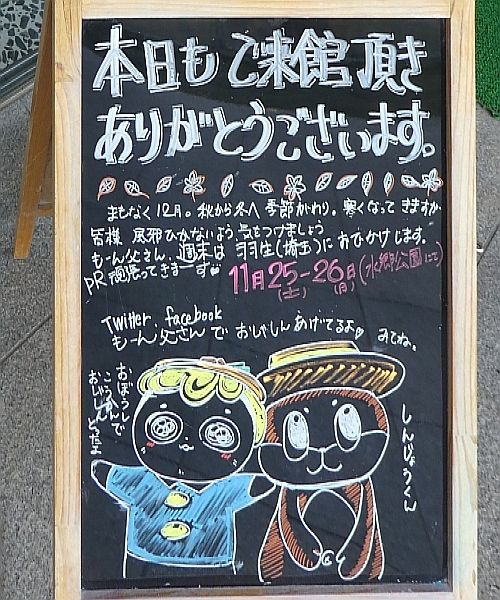 本日もご来館頂き
ありがとうございます。
まもなく12月。秋から冬へ 季節かわり。寒くなってきますが
皆様 風邪ひかないよう、気をつけましょう
もーん父さん、週末は 羽生(埼玉)におでかけします。
PR 頑張ってきまーす♥ 11月25-26日(水郷公園にて)
(土) (月)
Twitter facebook
もーん父さんで おしゃしんあげてるよ♥ みてね。
おぼうし
こうかんで
おしゃしんとったよ
しんじょうくん